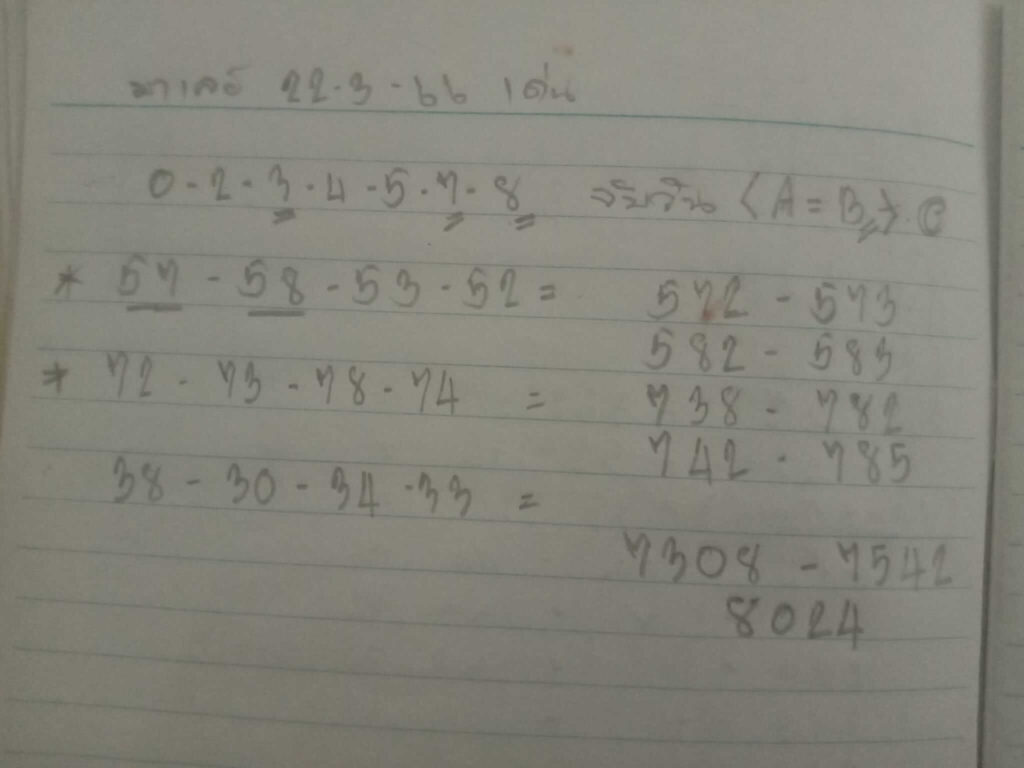 มาเลย์ 22·3·66 เด่น
0-2-3-4-5-7-8 จับวิน (A=B) C
* 57 - 58 - 53 - 52 = 572 - 573
582 - 583
* 72 - 73 - 78 - 74 = 738 - 782
742 - 785
38 - 30 - 34 - 33 =
7308 - 7542
8024